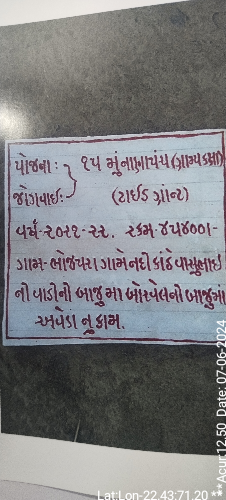 યોજના : } ૧૫ મું નાણાપંચ (ગ્રામ્યકક્ષા)
જોગવાઈ: (ટાઈડ ગ્રાન્ટ)
વર્ષ-૨૦૨૧-૨૨. રકમ-૪૫૪૦૦૧-
ગામ-ભોજપરા ગામે નદી કાંઠે વાસુભાઈ
ની વાડીની બાજુમા બોરવેલની બાજુમાં
અવેડા નુ કામ.
Lat:Lon-22.43;71.20 *
**Acur:12.50 Date: 07-06-2024